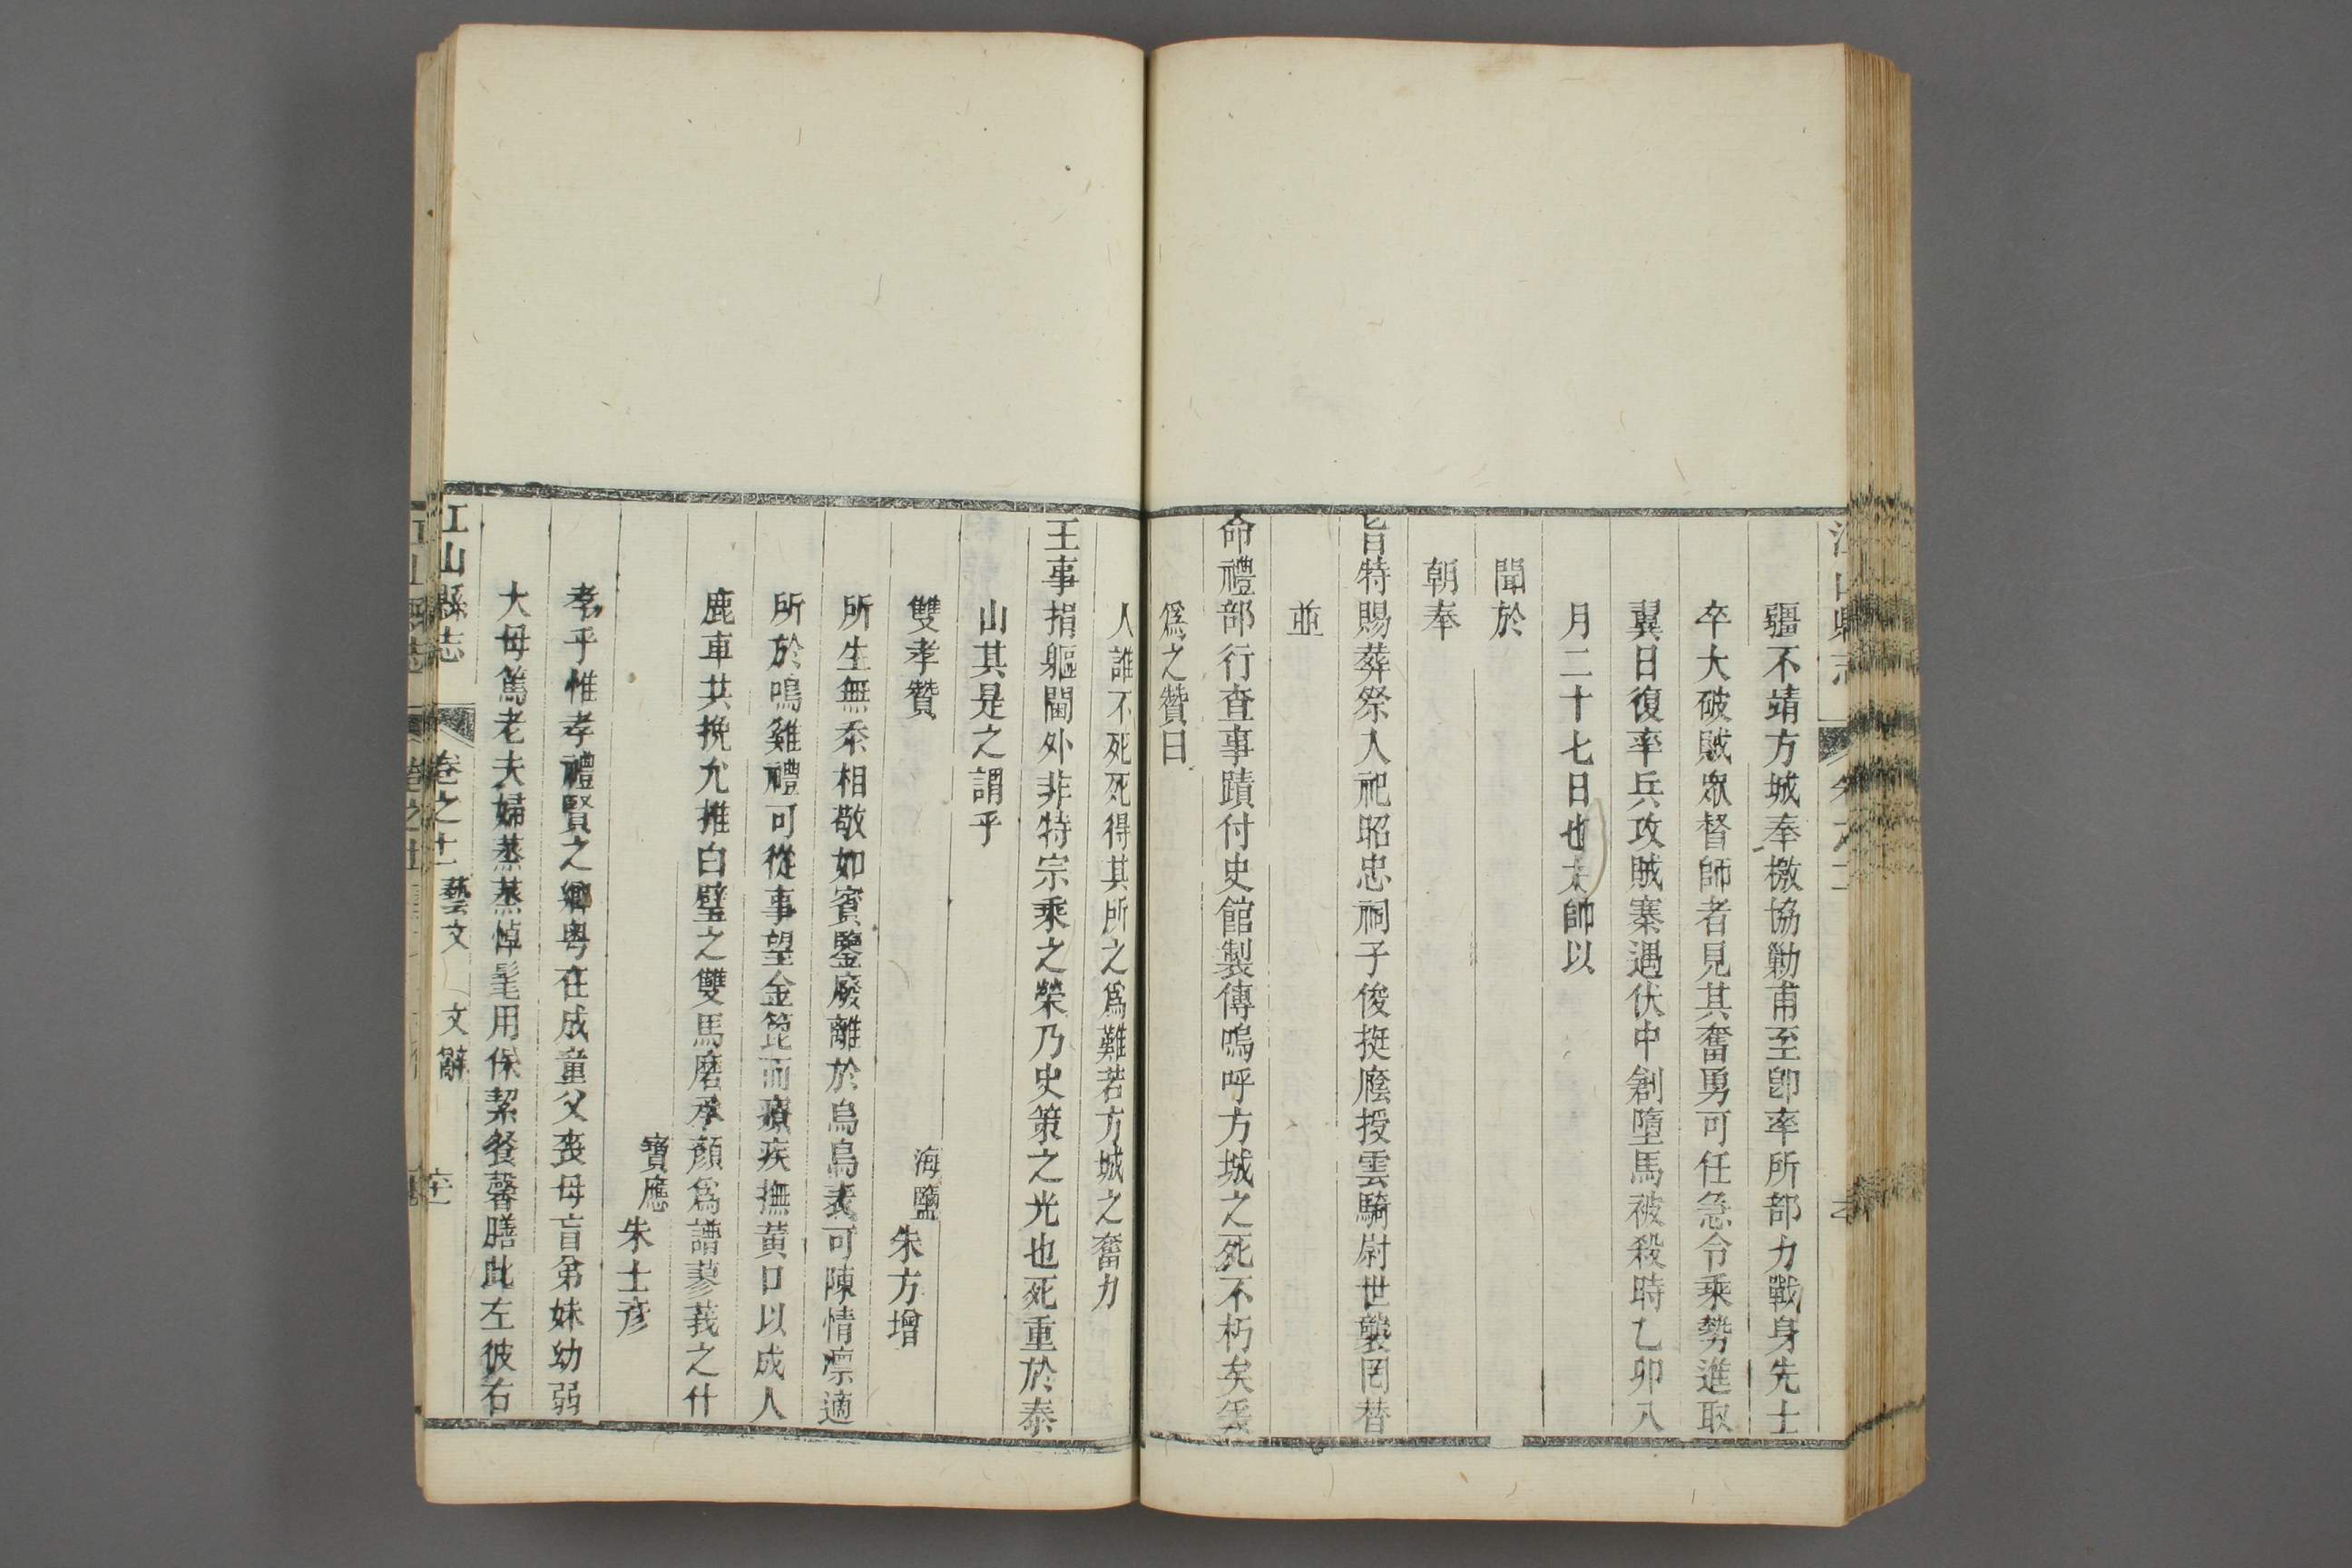 疆不靖方城奉檄協勦甫至卽率所部力戰身先士
卒大破賊衆督師者見其奮勇可任急令乘勢進取
翼日復率兵攻賊寨遇伏中創墮馬被殺時乙卯八
月二十七日也大帥以
聞於
朝奉
旨特賜葬祭入祀昭忠祠子俊挺廕授雲騎尉世襲罔替
並
命禮部行查事蹟付史館製傳嗚呼方城之死不朽矣爰
爲之贊曰
人誰不死死得其所之爲難若方城之奮力
王事捐軀閫外非特宗乘之榮乃史策之光也死重於泰
山其是之謂乎
雙孝贊
海鹽朱方增
所生無忝相敬如賓鑒廢離於烏鳥表可陳情凛適
所於鳴雞禮可從事望金箆而療疾撫黃口以成人
鹿車共挽允推白璧之雙馬磨承顏爲譜蓼莪之什
寶應朱士彥
孝乎惟孝禮賢之鄉粵在成童父喪母盲弟妹幼弱
大母篤老夫婦蒸蒸悼髦用保絜餐馨膳此左彼右
江山縣志 卷之十一 藝文 文辭